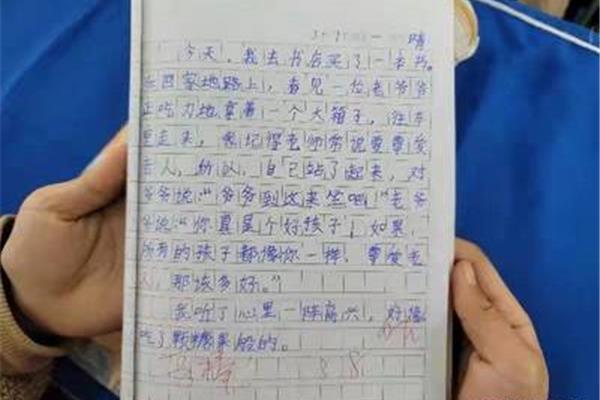 一 晴
今天，我去书店买了一本书。
在回家地路上，看见一位老爷爷
正吃力地拿着一个大箱子，往车
里走来，我记得老师常说要尊爱
老人，所以，自己站了起来，对
爷爷说："爷爷到这来坐吧！"老爷
爷说："你真是个好孩子！如果，
所有的孩子都像你一样，尊爱老
人，那该多好。"
我听了心里一阵高兴，好像
吃了颗糖果般的。